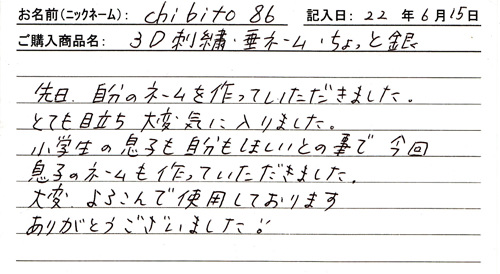 お名前(ニックネーム): chibito 86 記入日: 22 年 6 月 15 日
ご購入商品名: 3D刺繍・垂ネーム・ちょっと銀
先日、自分のネームを作っていただきました。
とても目立ち 大変気に入りました。
小学生の息子も自分もほしいとの事で 今回
息子のネームも作っていただきました。
大変、よろこんで使用しております
ありがとうございました!!